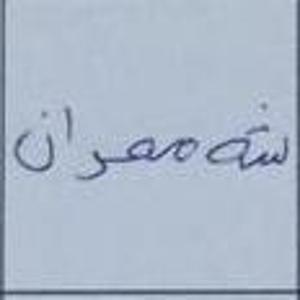 شه مهران